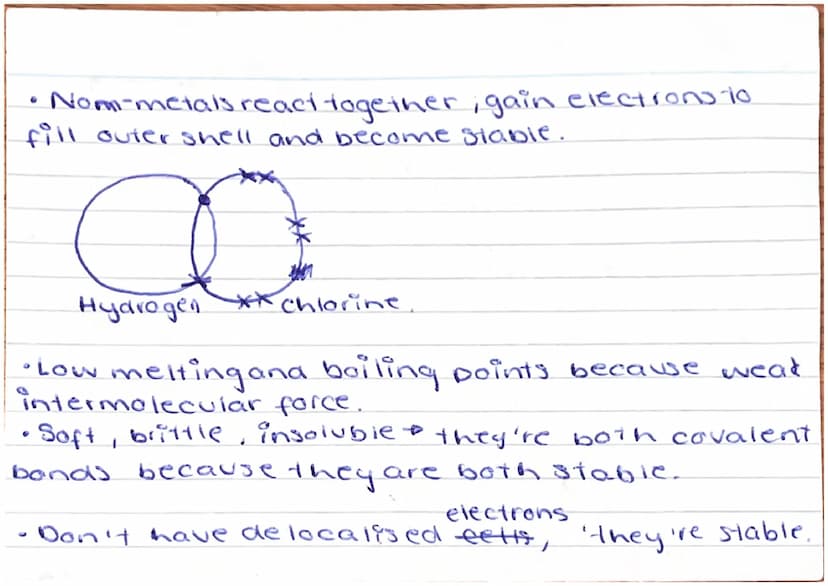 • Nom-metals react together, gain electrons to
fill outer shell and become stable.
Hydrogen chlorine.
• Low melting and boiling points because weak
intermolecular force.
• Soft, brittle, insoluble → they're both covalent
bonds because they are both stable.
electrons
• Don't have delocalised, they're stable.